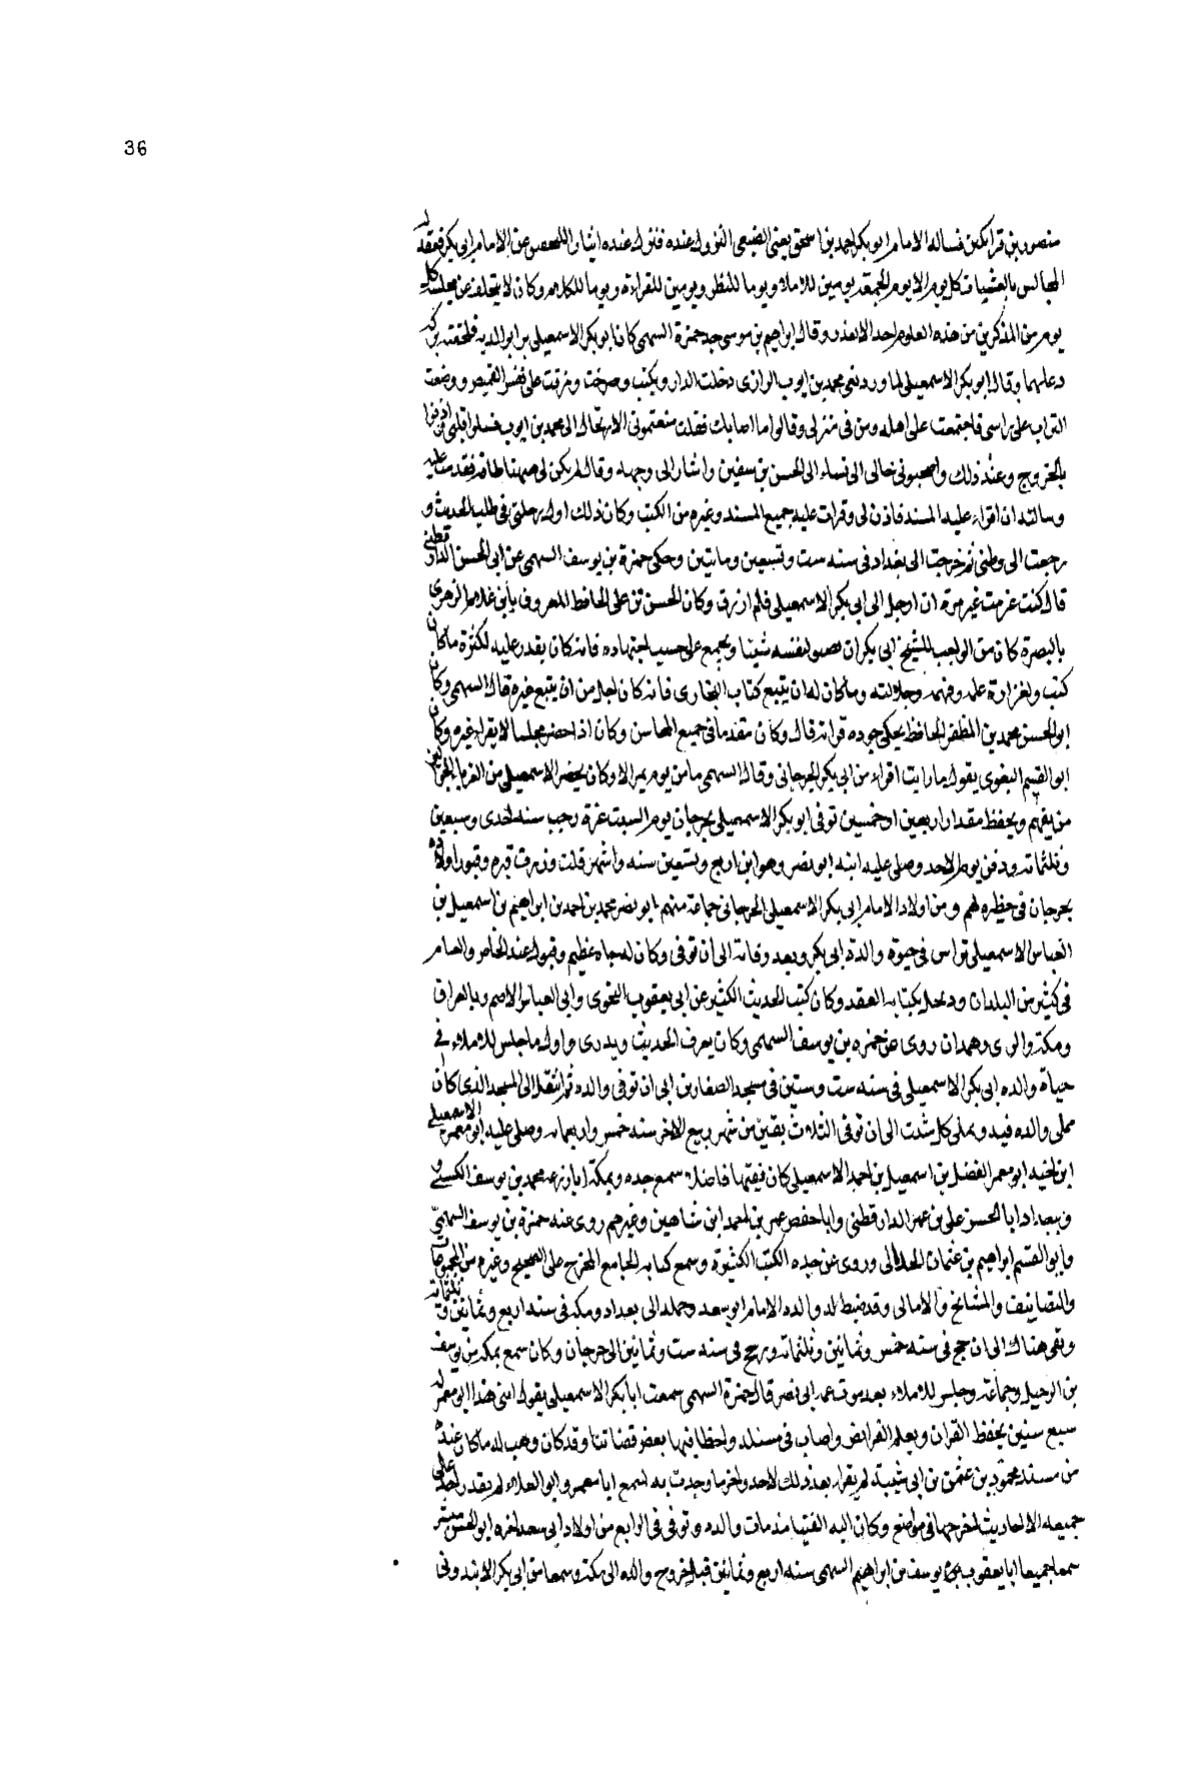 36
منصور بن قراتكين فساله الامام ابو بكر احمد بن اسحق يعنى الضبعى النزول عنده فنزل عنده ايثارا عن الامام ابى بكر فعقد له
المجالس بالعشيات كل يوم الا يوم الجمعة يومين للاملاء ويوما للنظر ويومين للقراءة ويوما للكلام وكان لا يتخلف عن مجلسه كل
يوم من المذكرين من هذه العلوم احد الا بعذر وقال ابراهيم بن موسى جد حمزة السهمى كان ابو بكر الاسمعيلى برا بوالديه فلحقته بركة
دعايهما وقال ابو بكر الاسمعيلى لما ورد نعى محمد بن ايوب الرازى دخلت الدار وبكيت وصرخت ومزقت على نفسى القميص ووضعت
التراب على راسى فاجتمعت على اهلى ومن فى منزلى وقالوا ما اصابك فقلت منعتمونى الارتحال الى محمد بن ايوب فسلوا قلبى اذنوا لى
بالخروج وعند ذلك واصحبونى خالى الى نساء الى الحسن بن سفين واشار الى وجهه وقال لم يكن لى ههنا طاقة فقدمت عليه
وسالته ان اقراء عليه المسند فاذن لى وقرات عليه جميع المسند وغيره من الكتب وكان ذلك اول رحلتى فى طلب الحديث و
رجعت الى وطنى ثم خرجت الى بغداد فى سنه ست وتسعين ومايتين وحكى حمزة بن يوسف السهمى عن ابى الحسن الدارقطنى
قال كنت عزمت غير مرة ان ارحل الى ابى بكر الاسمعيلى فلم ارزق وكان الحسن بن على الحافظ المعروف بابن غلام الزهرى
بالبصرة كان من الواجب للشيخ ابى بكر ان يصنف لنفسه شيئا ويجمع على حسب اجتهاده فانه كان يقدر عليه لكثرة ما كان
كتب ولغزارة علمه وفهمه وجلالته وما كان له ان يتبع كتاب البخارى فانه كان اجل من ان يتبع غيره قال السهمى وكان
ابو الحسن محمد بن المظفر الحافظ يحكى جوده قراته قال وكان مقدما فى جميع المجالس وكان اذا حضر مجلسا لا يقرا غيره وكان
ابو القسم البغوى يقول ما رايت اقراء من ابى بكر الجرجانى وقال السهمى ما من يوم يمر الا وكان يحضر الاسمعيلى من الغربا
من يفهم ويحفظ مقدار اربعين او خمسين توفى ابو بكر الاسمعيلى بجرجان يوم السبت غرة رجب سنه احدى وسبعين
وثلثماته ودفن يوم الاحد وصلى عليه ابنه ابو نصر وهو ابن اربع وتسعين سنه واشهر قلت وزرت قبره وقبور اولاده
بجرجان فى حظيره لهم ومن اولاد الامام ابى بكر الاسمعيلى الجرجانى جماعة منهم ابو نصر محمد بن احمد بن ابراهيم بن اسمعيل بن
العباس الاسمعيلى تراس فى حيوة والده ابى بكر وبعد وفاته الى ان توفى وكان له جاه عظيم وقبول عند الخاص والعام
فى كثير من البلدان ودخل بكتابه العقد وكان كتب الحديث الكثير عن ابى يعقوب النحوى وابى العباس الاصم وبالعراق
ومكة والرى وهمدان روى عنه حمزه بن يوسف السهمى وكان يعرف الحديث ويدرى واول ما جلس للاملاء فى
حياة والده ابى بكر الاسمعيلى فى سنه ست وستين فى مسجد الصفارين الى ان توفى والده ثم انتقل الى المسجد الذى كان
يملى والده فيه ويملى كل سبت الى ان توفى الثلاث بقين من شهر ربيع الاخر سنه خمس واربعماته وصلى عليه ابو معمر الاسمعيلى
ابن اخيه ابو معمر الفضل بن اسمعيل بن احمد الاسمعيلى كان فقيها فاضلا سمع جده وبمكة ابا زرعه محمد بن يوسف الكسى و
وببغداد ابا الحسن على بن عمر الدارقطنى وابا حفص عمر بن احمد ابن شاهين وغيرهم روى عنه حمزة بن يوسف السهمى
وابو القسم ابراهيم بن عثمان الخلالى وروى عن جده الكتب الكثيرة وسمع كتابه الجامع المخرج على الصحيح وغيره من المجموعات
والتصانيف والمشائخ والامالى وقد ضبط له والده الامام ابو سعد وحمله الى بغداد ومكة فى سنه اربع وثمانين وثلثماته
وبقى هناك الى ان حج فى سنه خمس وثمانين وثلثماته ورجع فى سنه ست وثمانين الى جرجان وكان سمع بمكه من يوسف
بن الدخيل وجماعة وجلس للاملاء بعد موت عمه ابى نصر قال حمزة السهمى سمعت ابا بكر الاسمعيلى يقول ابنى هذا ابو معمر له
سبع سنين يحفظ القران ويعلم الفرايض واصاب فى مسئله واخطا فيها بعض قضاتنا وقد كان وهب له ما كان عنده
من مسند محمد بن عثمن بن ابى شيبة لم يقرا بعد ذلك لاحد واخر ما وجدت به لسمع ابا معمر وابو العلاء لم يقدر احد على
جميعه الا احاديث اخرجها فى مواضع وكان اليه الفتيا منذ مات والده وتوفى فى الرابع من اولاد ابى سعد اخره ابو الحسن مبشر
سمعا جميعا ابا يعقوب يوسف بن ابراهيم السهمى سنه اربع وثمانين قبل خروج والده الى مكة وسمعا من ابى بكر الابندونى